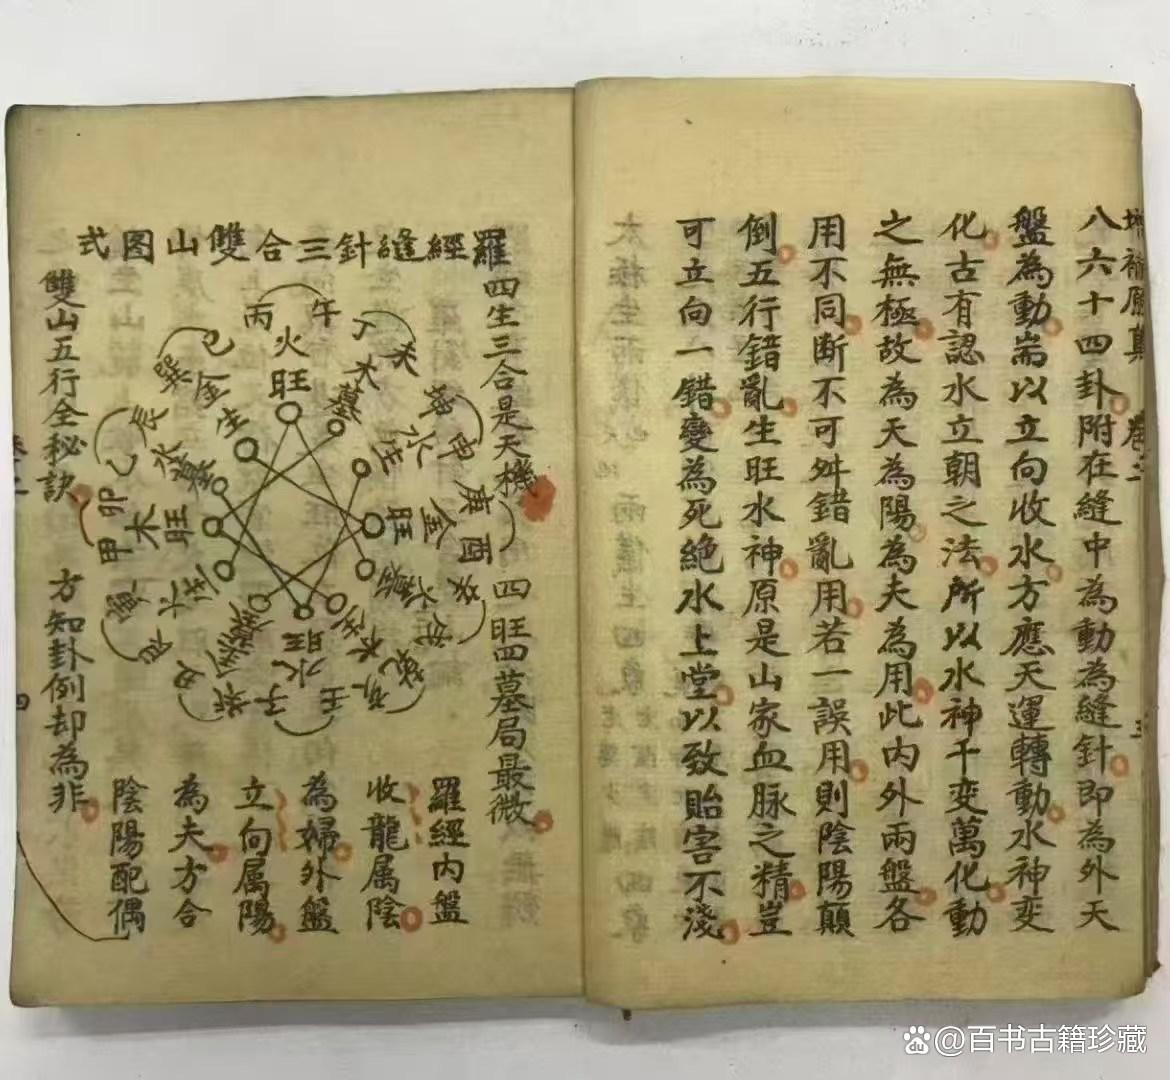 八六十四卦附在縫中為動為縫針即為外天
盤為動耑以立向收水方應天運轉動水神变
化古有認水立朝之法所以水神千变萬化動
之無極故為天為陽為夫為用此内外兩盤各
用不同断不可舛錯亂用若一誤用則陰陽顛
倒五行錯亂生旺水神原是山家血脉之精豈
可立向一錯變為死絶水上堂以致貽害不淺
羅經縫針三合雙山图式
四生三合是天機
四旺四墓局最微
羅經内盤
收龍属陰
為婦外盤
立向属陽
為夫方合
陰陽配偶
雙山五行全秘訣
方知卦例却為非
丙午
火
旺
丁未
木
墓
坤申
水
生
庚酉
金
旺
辛戌
火
墓
乾亥
木
生
壬子
水
旺
癸丑
金
墓
艮寅
火
生
甲卯
木
旺
乙辰
水
墓
巽巳
金
生
卷二
四
@百书古籍珍藏